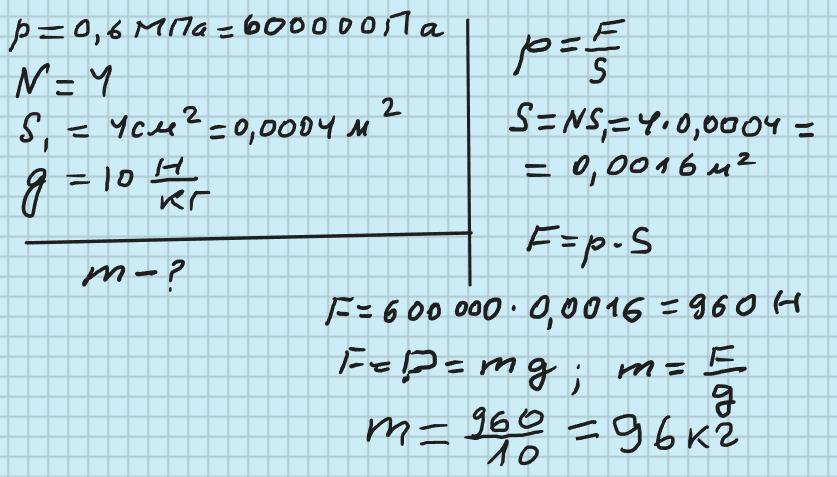 p = 0,6 МПа = 600000 Па
N = 4
S₁ = 4 см² = 0,0004 м²
g = 10 Н/кг
m - ?
p = F/S
S = NS₁ = 4 · 0,0004 =
= 0,0016 м²
F = p · S
F = 600 000 · 0,0016 = 960 Н
F = P = mg ; m = F/g
m = 960/10 = 96 кг